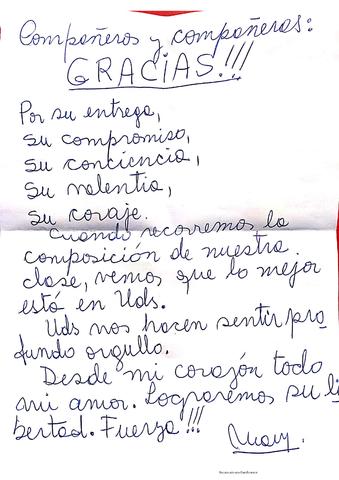 Compañeros y compañeras:
GRACIAS!!!
Por su entrega,
su compromiso,
su conciencia,
su valentia,
su coraje.
Cuando recorremos la
composición de nuestra
clase, vemos que lo mejor
está en Uds.
Uds nos hacen sentir pro
fundo orgullo.
Desde mi corazón todo
mi amor. Lograremos su li
bertad. Fuerza!!!